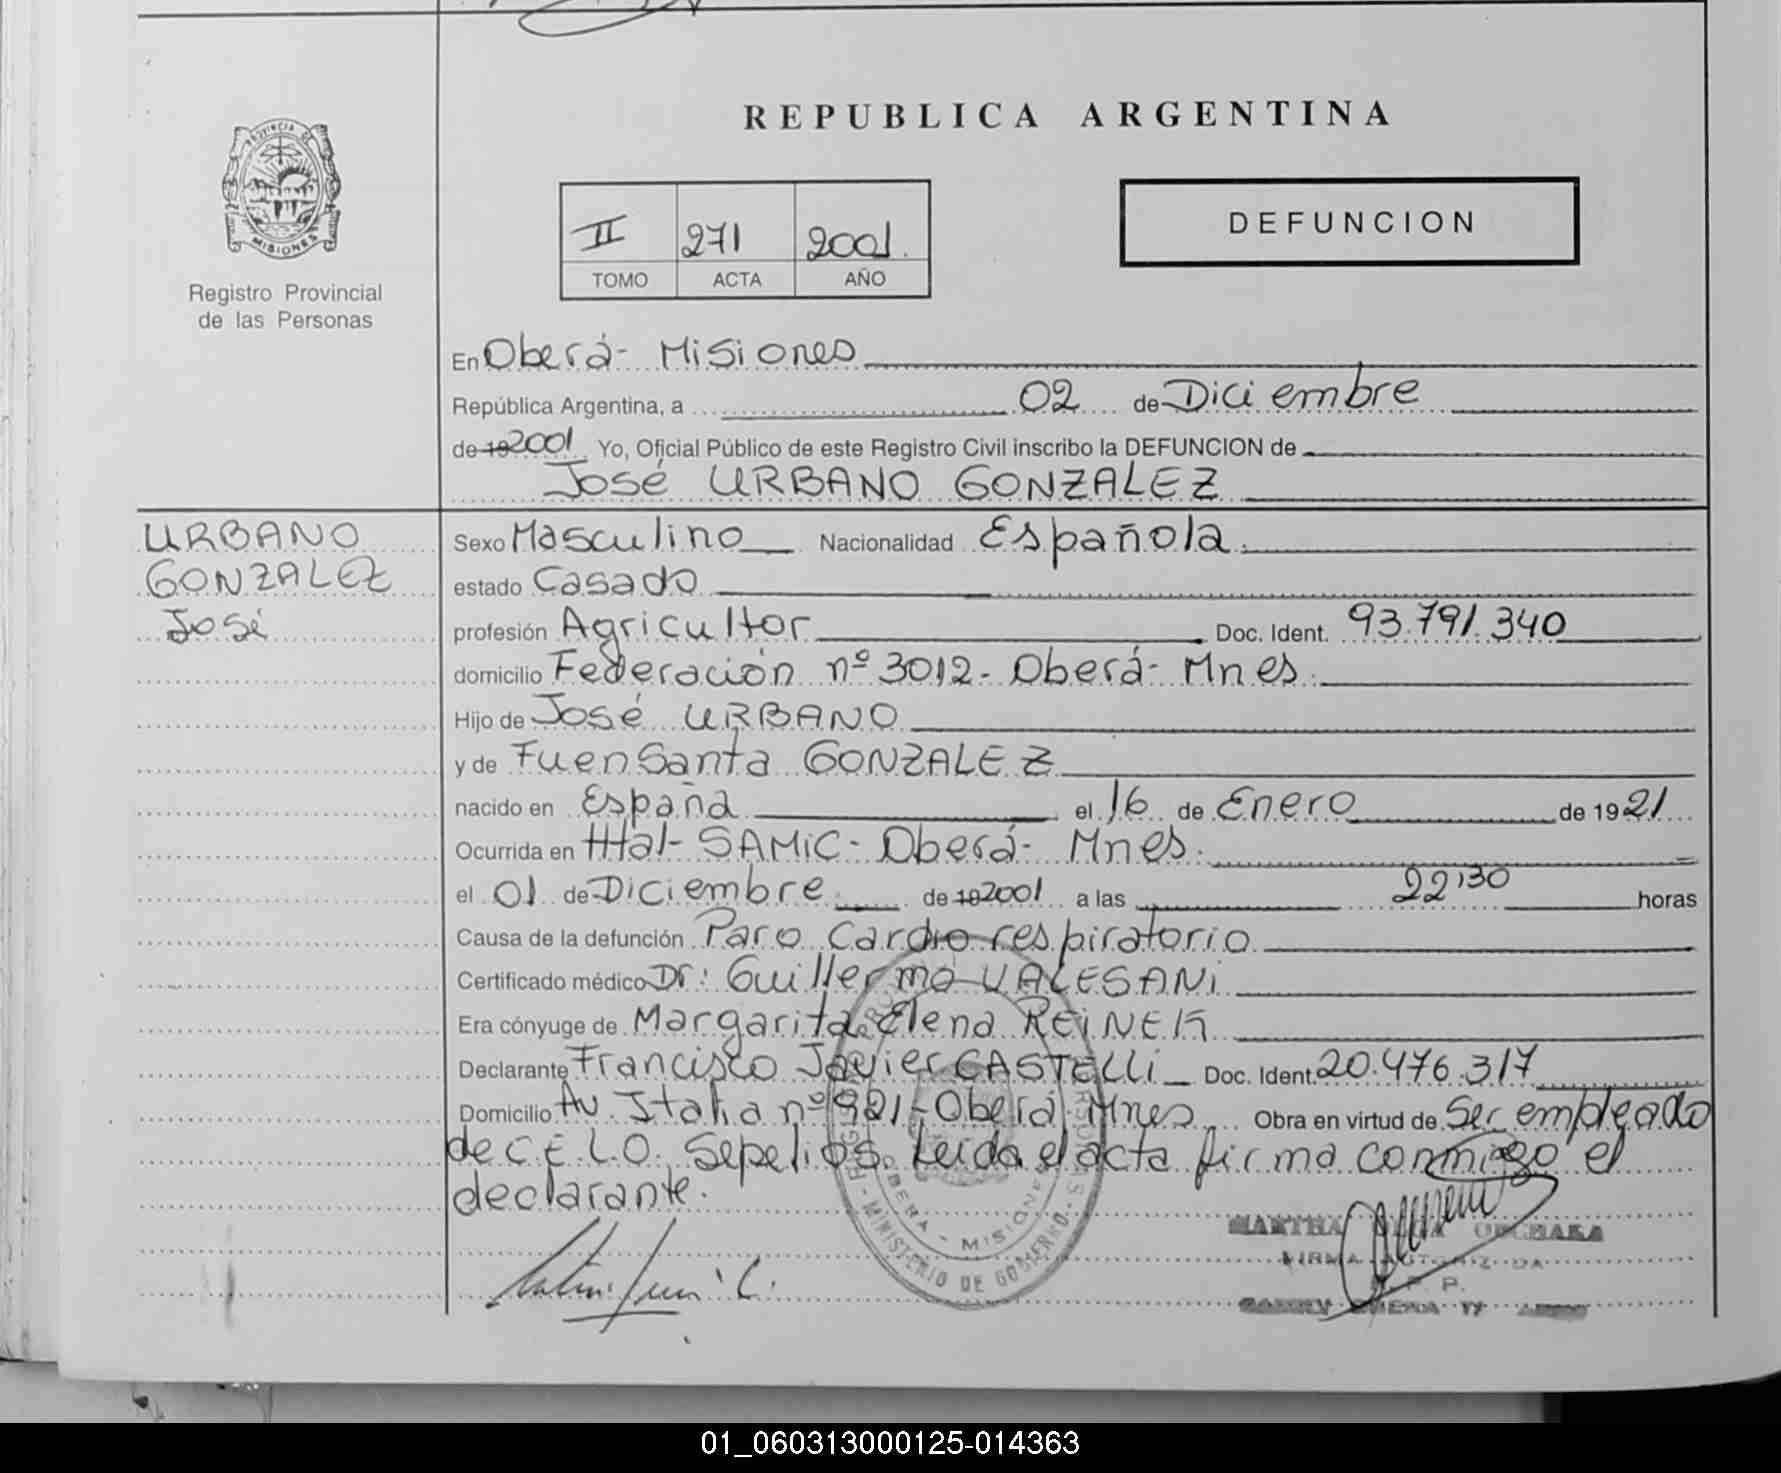 REPUBLICA ARGENTINA
PROVINCIA DE
MISIONES
Registro Provincial
de las Personas
II 271 2001.
TOMO ACTA AÑO
DEFUNCION
En Oberá- Misiones
República Argentina, a 02 de Diciembre
de 19 2001 Yo, Oficial Público de este Registro Civil inscribo la DEFUNCION de
José URBANO GONZALEZ
URBANO
GONZALEZ
José
Sexo Masculino Nacionalidad Española.
estado Casado
profesión Agricultor Doc. Ident. 93.791.340
domicilio Federación nº 3012- Oberá- Mnes.
Hijo de José URBANO
y de FuenSanta GONZALEZ
nacido en España el 16 de Enero de 1921
Ocurrida en Htal- SAMIC- Oberá- Mnes.
el 01 de Diciembre de 19 2001 a las 22'30 horas
Causa de la defunción Paro Cardio respiratorio
Certificado médico Dr: Guillermo VALESANi
Era cónyuge de Margarita Elena REINER
Declarante Francisco Javier CASTELLi Doc. Ident. 20.476.317
Domicilio Av. Italia nº 921- Oberá Mnes Obra en virtud de Ser empleado
de C.E.L.O. Sepelios. Leida el acta firma conmigo el
declarante.
MARTHA
FIRMA AUTORIZADA
R. P. P.
OBERA - MISIONES
MINISTERIO DE GOBIERNO
01_060313000125-014363